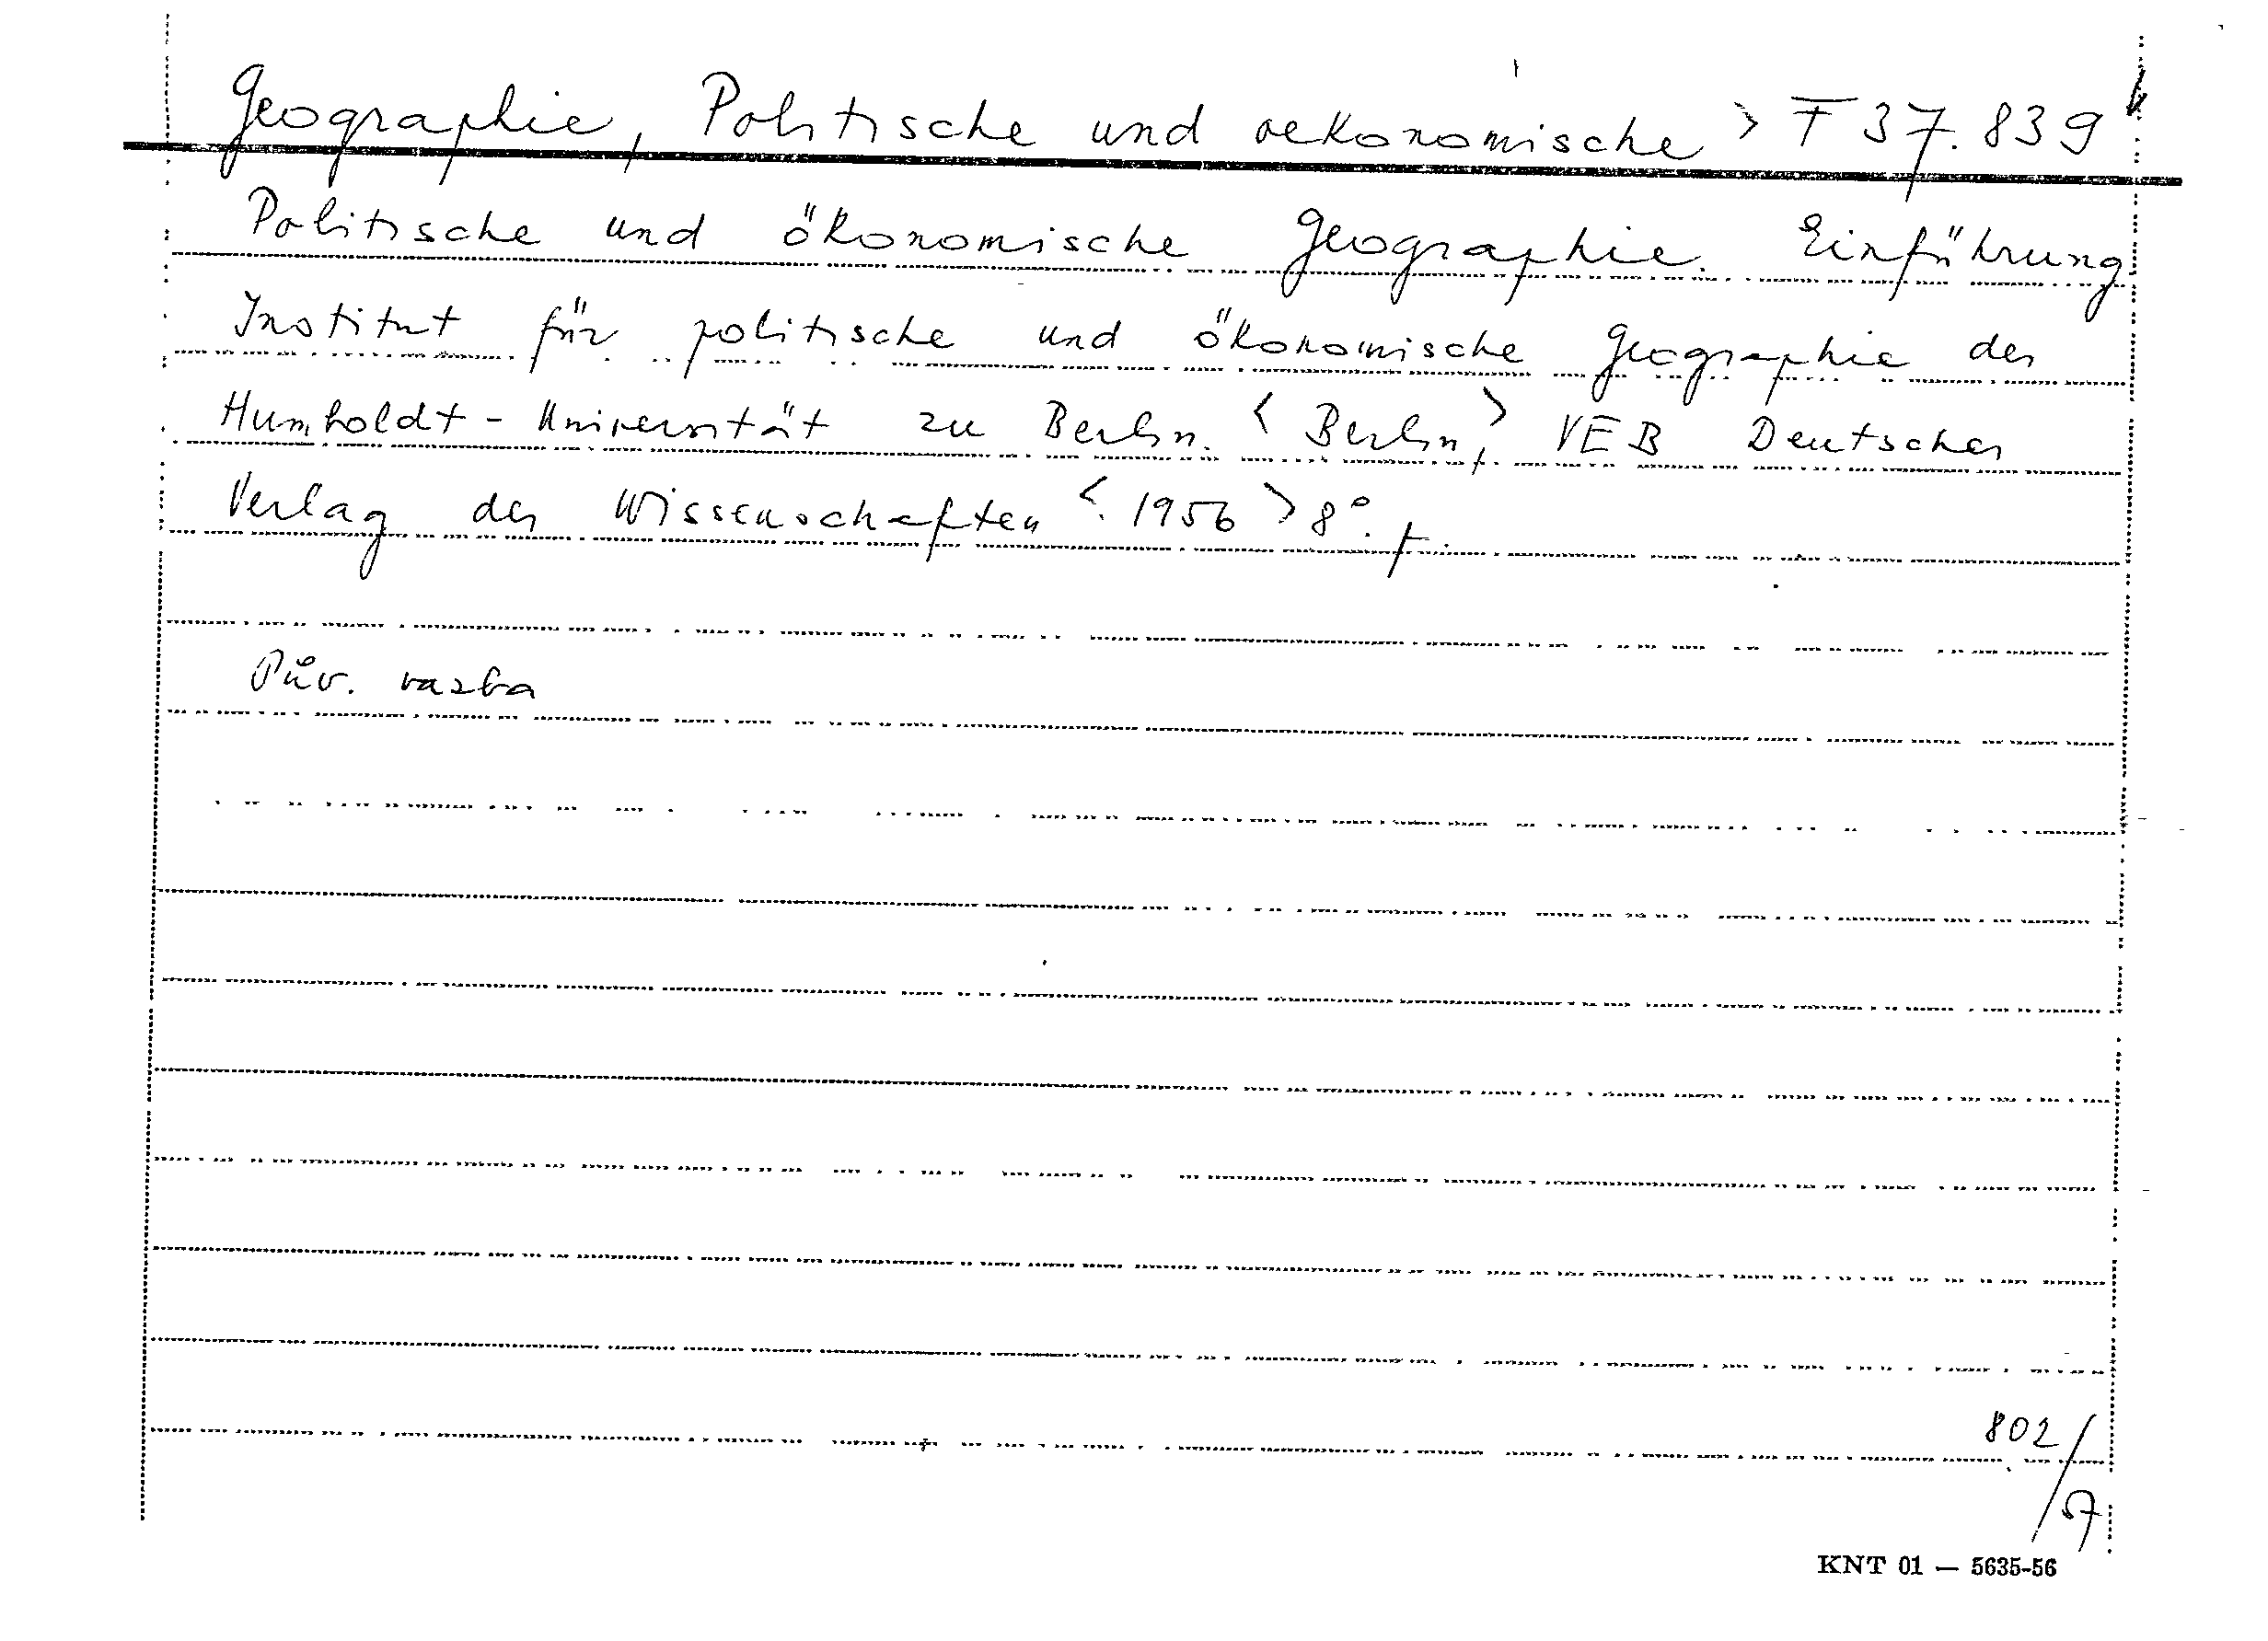 Geographie, Politische und oekonomische > F 37.839
Politische und ökonomische Geographie. Einführung
Institut für politische und ökonomische Geographie der
Humboldt-Universität zu Berlin. <Berlin,> VEB Deutscher
Verlag der Wissenschaften <1956> 8°.
Pův. vazba
802/
57
KNT 01 — 5635-56